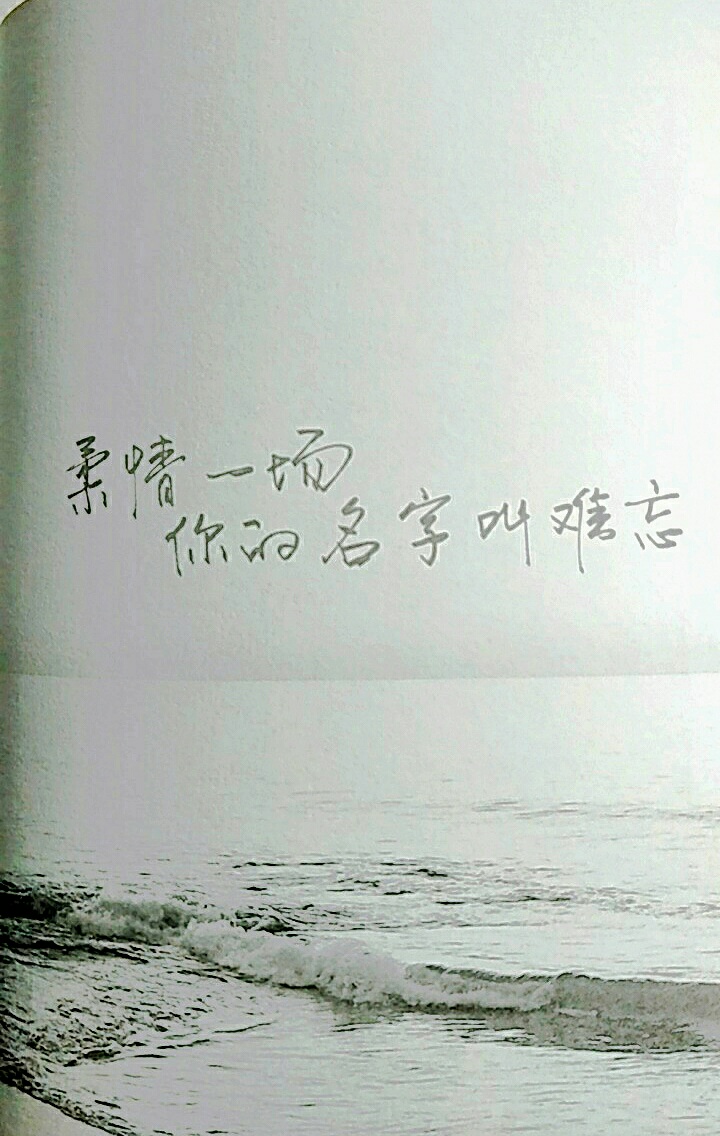 柔情一场
你的名字叫难忘